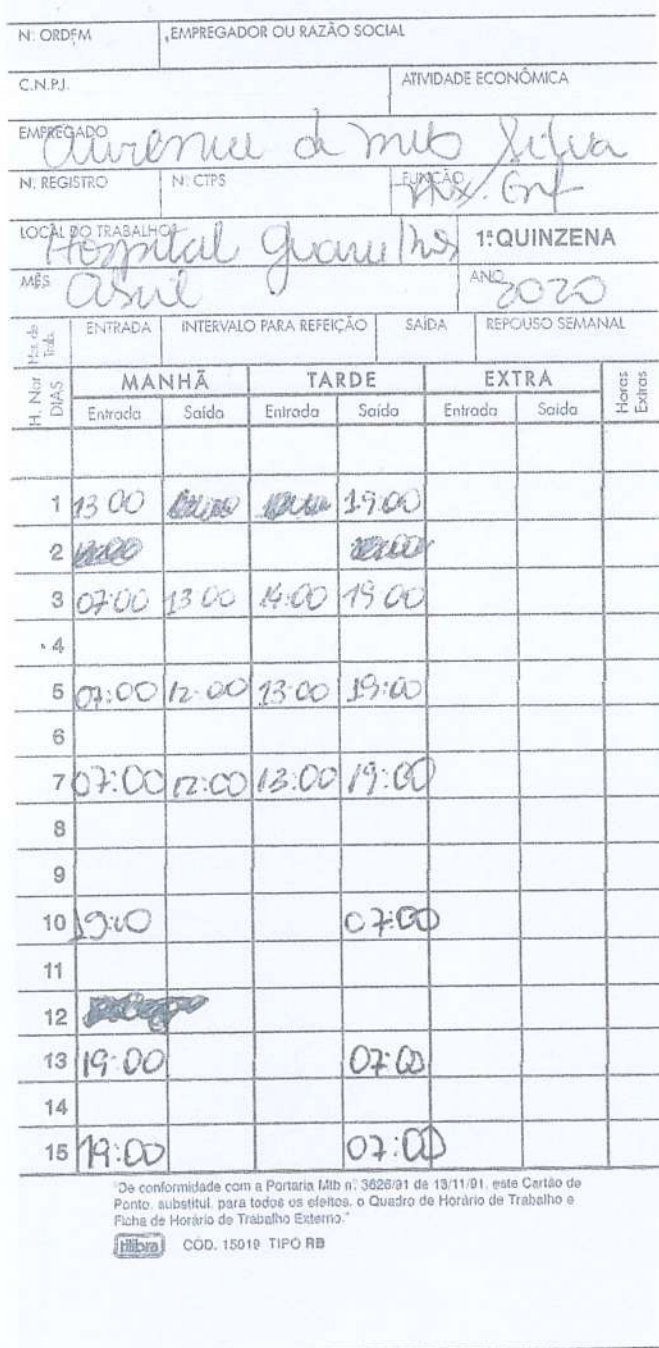 Nº ORDEM EMPREGADOR OU RAZÃO SOCIAL
C.N.P.J. ATIVIDADE ECONÔMICA
EMPREGADO
Silva
N. REGISTRO N. CTPS FUNÇÃO
LOCAL DO TRABALHO Hospital Guarulhos 1ª QUINZENA
MÊS abril ANO 2020
Hor. de Trab. ENTRADA INTERVALO PARA REFEIÇÃO SAÍDA REPOUSO SEMANAL
H. Nor DIAS MANHÃ TARDE EXTRA Horas Extras
Entrada Saída Entrada Saída Entrada Saída
1 13 00 19:00
2
3 07:00 13 00 14:00 19 00
4
5 07:00 12:00 13:00 19:00
6
7 07:00 12:00 13:00 19:00
8
9
10 19:00 07:00
11
12
13 19:00 07:00
14
15 19:00 07:00
"De conformidade com a Portaria Mtb n. 3626/91 de 13/11/91, este Cartão de
Ponto, substitui, para todos os efeitos, o Quadro de Horário de Trabalho e
Ficha de Horário de Trabalho Externo."
tilibra CÓD. 15019 TIPO RB